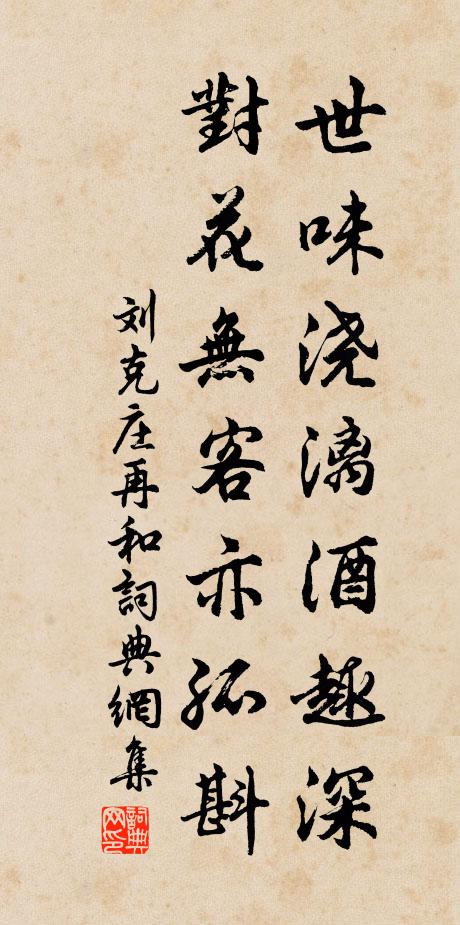 世味浇漓酒趣深
對花無客亦孤斟
刘克庄再和詞典網集
詞典網印